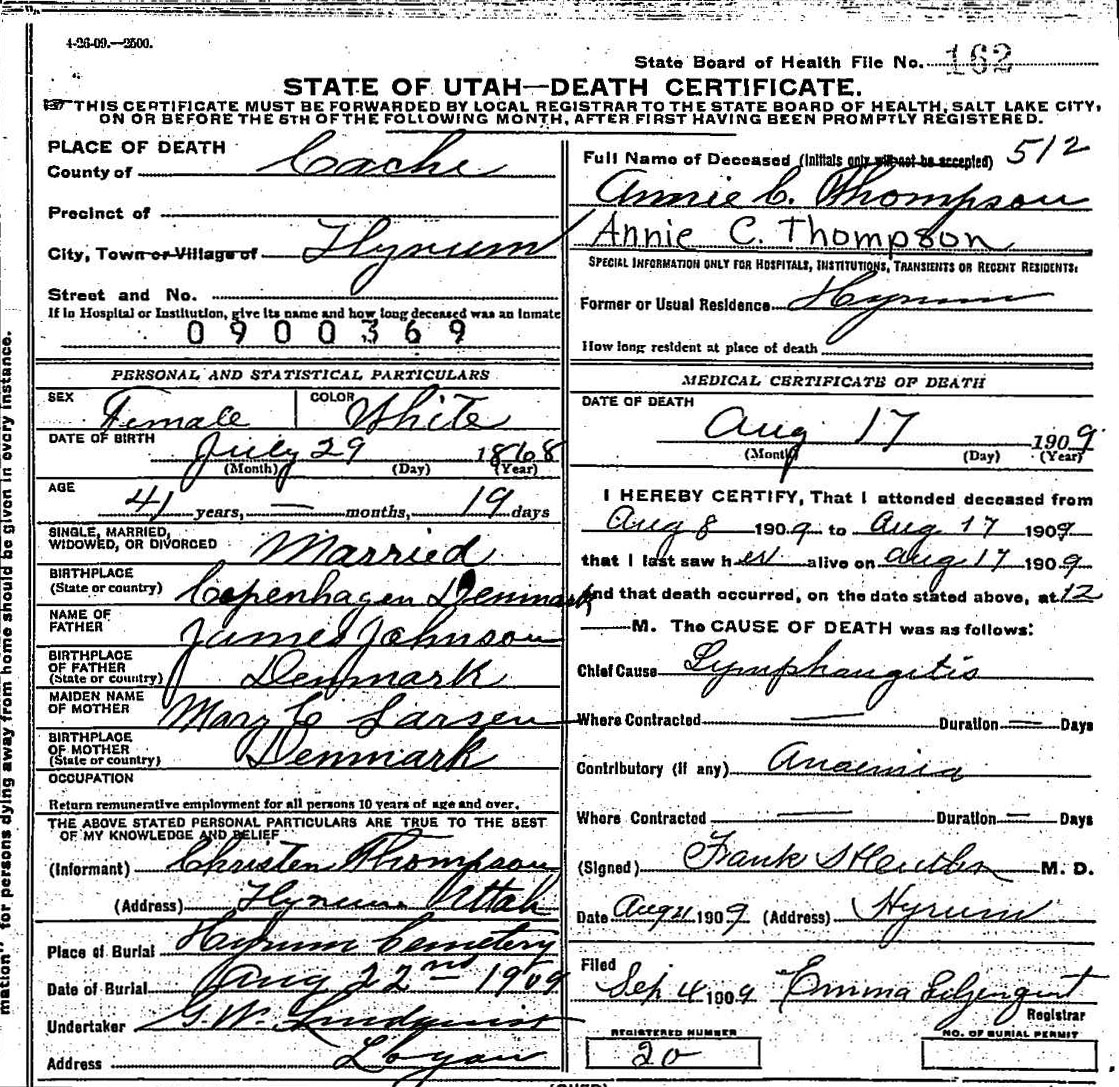 4-26-09.—2500.
State Board of Health File No. 162
STATE OF UTAH—DEATH CERTIFICATE.
THIS CERTIFICATE MUST BE FORWARDED BY LOCAL REGISTRAR TO THE STATE BOARD OF HEALTH, SALT LAKE CITY,
ON OR BEFORE THE 5TH OF THE FOLLOWING MONTH, AFTER FIRST HAVING BEEN PROMPTLY REGISTERED.
PLACE OF DEATH
County of Cache
Precinct of
City, Town or Village of Hyrum
Street and No.
If in Hospital or Institution, give its name and how long deceased was an inmate
0900369
PERSONAL AND STATISTICAL PARTICULARS
SEX Female COLOR White
DATE OF BIRTH July 29 1868
(Month) (Day) (Year)
AGE
41 years, — months, 19 days
SINGLE, MARRIED,
WIDOWED, OR DIVORCED Married
BIRTHPLACE
(State or country) Copenhagen Denmark
NAME OF
FATHER James Johnson
BIRTHPLACE
OF FATHER
(State or country) Denmark
MAIDEN NAME
OF MOTHER Mary C Larsen
BIRTHPLACE
OF MOTHER
(State or country) Denmark
OCCUPATION
Return remunerative employment for all persons 10 years of age and over.
THE ABOVE STATED PERSONAL PARTICULARS ARE TRUE TO THE BEST
OF MY KNOWLEDGE AND BELIEF
(Informant) Christen Thompson
(Address) Hyrum Utah
Place of Burial Hyrum Cemetery
Date of Burial Aug 22nd 1909
Undertaker G.W. Lindquist
Address Logan
Full Name of Deceased (Initials only will not be accepted) 512
Annie C. Thompson
Annie C. Thompson
SPECIAL INFORMATION ONLY FOR HOSPITALS, INSTITUTIONS, TRANSIENTS OR RECENT RESIDENTS:
Former or Usual Residence Hyrum
How long resident at place of death
MEDICAL CERTIFICATE OF DEATH
DATE OF DEATH
Aug 17 1909
(Month) (Day) (Year)
I HEREBY CERTIFY, That I attended deceased from
Aug 8 1909 to Aug 17 1909
that I last saw her alive on Aug 17 1909
and that death occurred, on the date stated above, at 12
— M. The CAUSE OF DEATH was as follows:
Chief Cause Lymphangitis
Where Contracted — Duration — Days
Contributory (if any) Anaemia
Where Contracted — Duration — Days
(Signed) Frank M. D.
Date Aug 1909 (Address) Hyrum
Filed
Sep 4 1909 Emma
Registrar
REGISTERED NUMBER
20
NO. OF BURIAL PERMIT
(OVER)
mation" for persons dying away from home should be given in every instance.